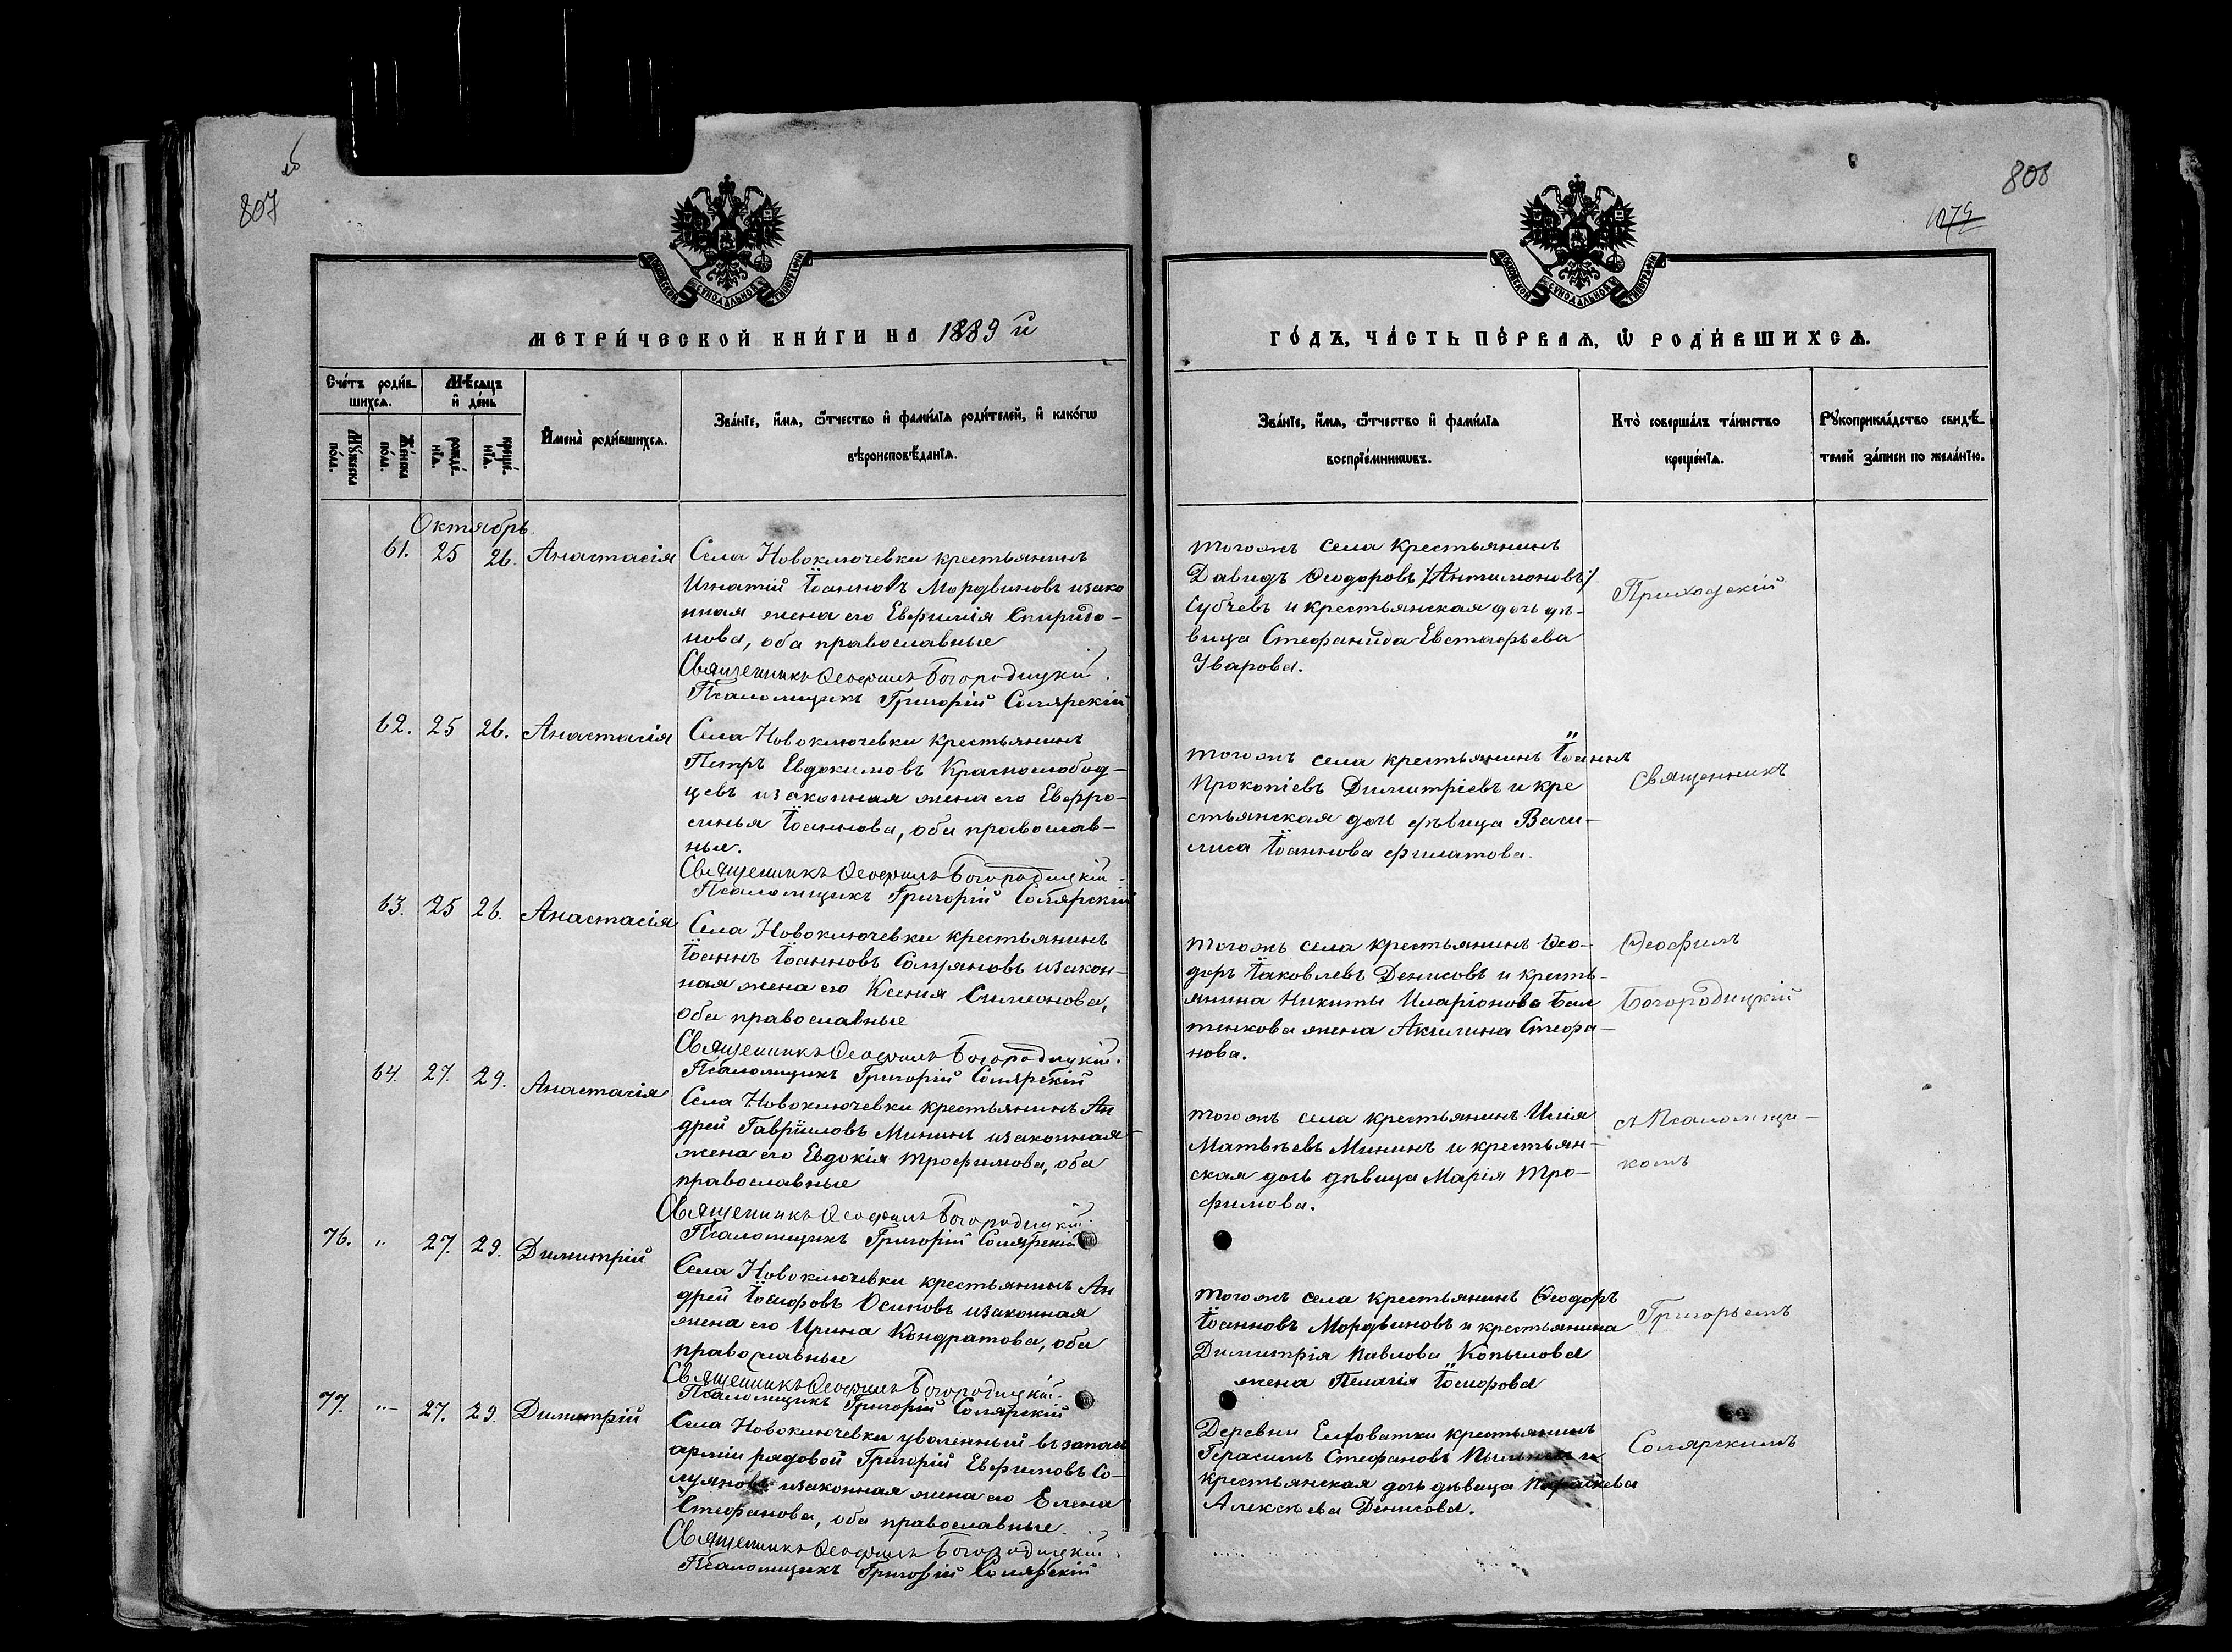 об
807
808
1074
МОСКОВСКОЙ СѴНОДАЛЬНОЙ ТИПОГРАФІИ
МОСКОВСКОЙ СѴНОДАЛЬНОЙ ТИПОГРАФІИ
МЕТРИ́ЧЕСКОЙ КНИ́ГИ НА 1889 й
Сче́тъ роди́в-
шихсѧ.
Мѣ́сѧцъ
и҆ де́нь
Мꙋ́жеска
по́ла.
Же́нска
по́ла.
рожде́-
нїѧ.
креще́-
нїѧ.
И҆мена̀ роди́вшихсѧ.
Зва́нїе, и҆́мѧ, ѻ҆́тчество и҆ фами́лїѧ роди́телей, и҆ како́гѡ
вѣроисповѣ́данїѧ.
Октябрь.
61. 25 26. Анастасія
Села Новоключевки крестьянинъ
Игнатій Іоанновъ Мордвиновъ изако
нная жена его Евфимія Спиридо-
нова, оба православные
Священникъ Ѳеофилъ Богородицкій.
Псаломщикъ Григорій Солярскій
62. 25 26. Анастасія
Села Новоключевки крестьянинъ
Петръ Евдокимовъ Краснослобод-
цевъ изаконная жена его Евфро-
синья Іоаннова, оба православ-
ные.
Священникъ Ѳеофилъ Богородицкій.
Псаломщикъ Григорій Солярскій
63. 25 26. Анастасія
Села Новоключевки крестьянинъ
Іоаннъ Іоанновъ Солуяновъ изакон-
ная жена его Ксенія Симеонова,
оба православные
Священникъ Ѳеофилъ Богородицкій.
Псаломщикъ Григорій Солярскій
64. 27. 29. Анастасія
Села Новоключевки крестьянинъ Ан
дрей Гавріиловъ Мининъ изаконная
жена его Евдокія Трофимова, оба
православные
Священникъ Ѳеофилъ Богородицкій.
Псаломщикъ Григорій Солярскій
76. „ 27. 29. Димитрій
Села Новоключевки крестьянинъ Ан
дрей Іосифовъ Осиповъ изаконная
жена его Ирина Кондратова, оба
православные
Священникъ Ѳеофилъ Богородицкій.
Псаломщикъ Григорій Солярскій
77. „- 27. 29. Димитрій
Села Новоключевки уволенный въ запасъ
арміи рядовой Григорій Евфимовъ Со-
луяновъ изаконная жена его Елена
Стефанова, оба православные.
Священникъ Ѳеофилъ Богородицкій.
Псаломщикъ Григорій Солярскій
ГО́ДЪ, ЧА́СТЬ ПЕ́РВАѦ, Ѡ҆ РОДИ́ВШИХСѦ.
Зва́нїе, и҆́мѧ, ѻ҆́тчество и҆ фами́лїѧ
воспрїе́мникѡвъ.
Кто̀ соверша́лъ та́инство
креще́нїѧ.
Рꙋкоприкла́дство свидѣ́-
телей за́писи по жела́нїю.
тогожъ села крестьянинъ
Давидъ Ѳеодоровъ /Антимоновъ/
Субчевъ и крестьянская дочь дѣ-
вица Стефанида Евстафьева
Уварова.
тогожъ села крестьянинъ Іоаннъ
Прокопіевъ Димитріевъ и кре
стьянская дочь дѣвица Васи-
лиса Іоаннова Филатова.
тогожъ села крестьянинъ Ѳео-
доръ Іаковлевъ Денисовъ и кресть-
янина Никиты Иларіонова Бал
тенкова жена Акилина Стефа-
нова.
тогожъ села крестьянинъ Илія
Матвѣевъ Мининъ и крестьян-
ская дочь дѣвица Марія Тро-
фимова.
тогожъ села крестьянинъ Ѳеодоръ
Іоанновъ Мордвиновъ и крестьянина
Димитрія Павлова Копылова
жена Пелагія Іосифова
Деревни Елховатки крестьянинъ
Герасимъ Стефановъ и
крестьянская дочь дѣвица Параскева
Алексѣева Денисова.
Приходскій
священникъ
Ѳеофилъ
Богородицкій
съ Псаломщи-
комъ
Григорьемъ
Солярскимъ